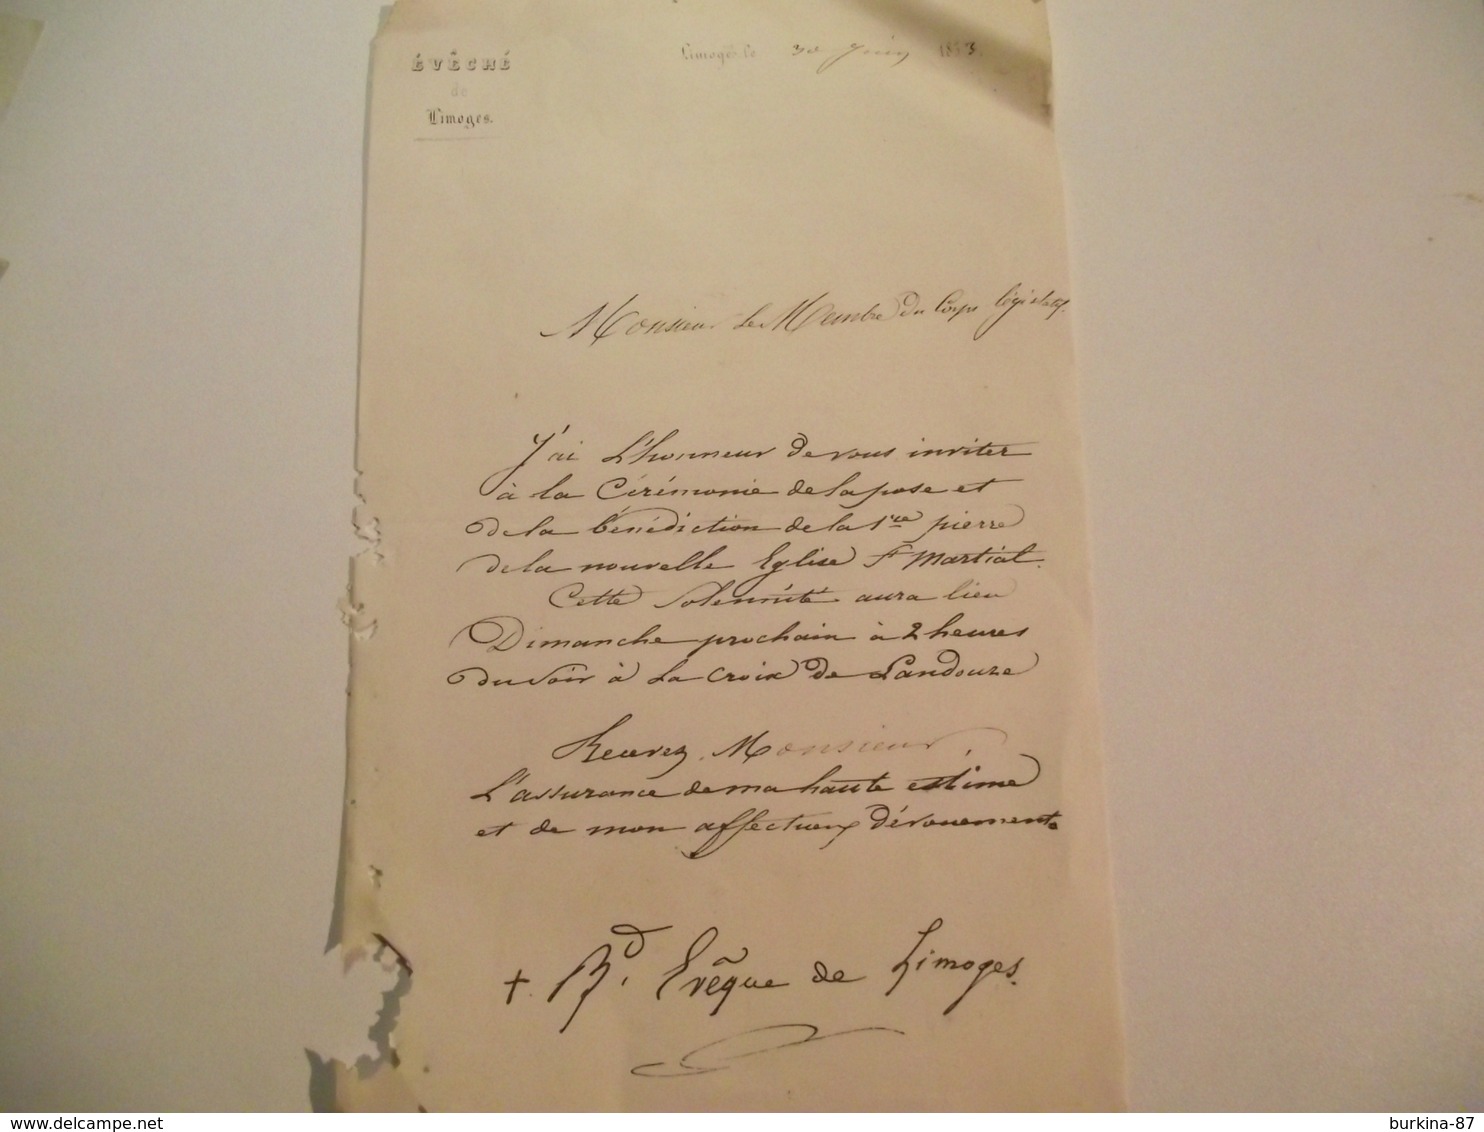 ÉVÊCHÉ
de
Limoges.
Limoges, le 30 Juin 1853.
Monsieur le Membre du Corps législatif.
J'ai l'honneur de vous inviter
à la Cérémonie de la pose et
de la bénédiction de la 1re pierre
de la nouvelle Eglise St Martial.
Cette Solennité aura lieu
Dimanche prochain à 2 heures
du soir à la croix de Landouze
Recevez, Monsieur,
L'assurance de ma haute estime
et de mon affectueux dévouement.
+ Bd. Evêque de Limoges.
burkina-87